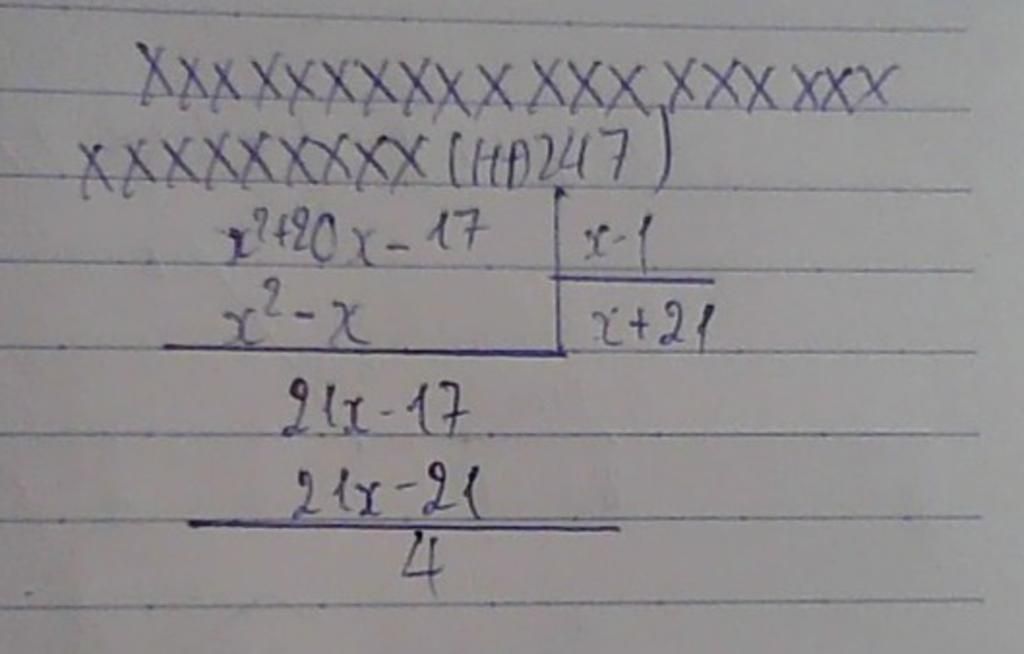 XXXXXXXXXXXXXXXXXXXX
XXXXXXXXXX (HD247)
x²+20x-17 | x-1
x²-x | x+21
21x-17
21x-21
4